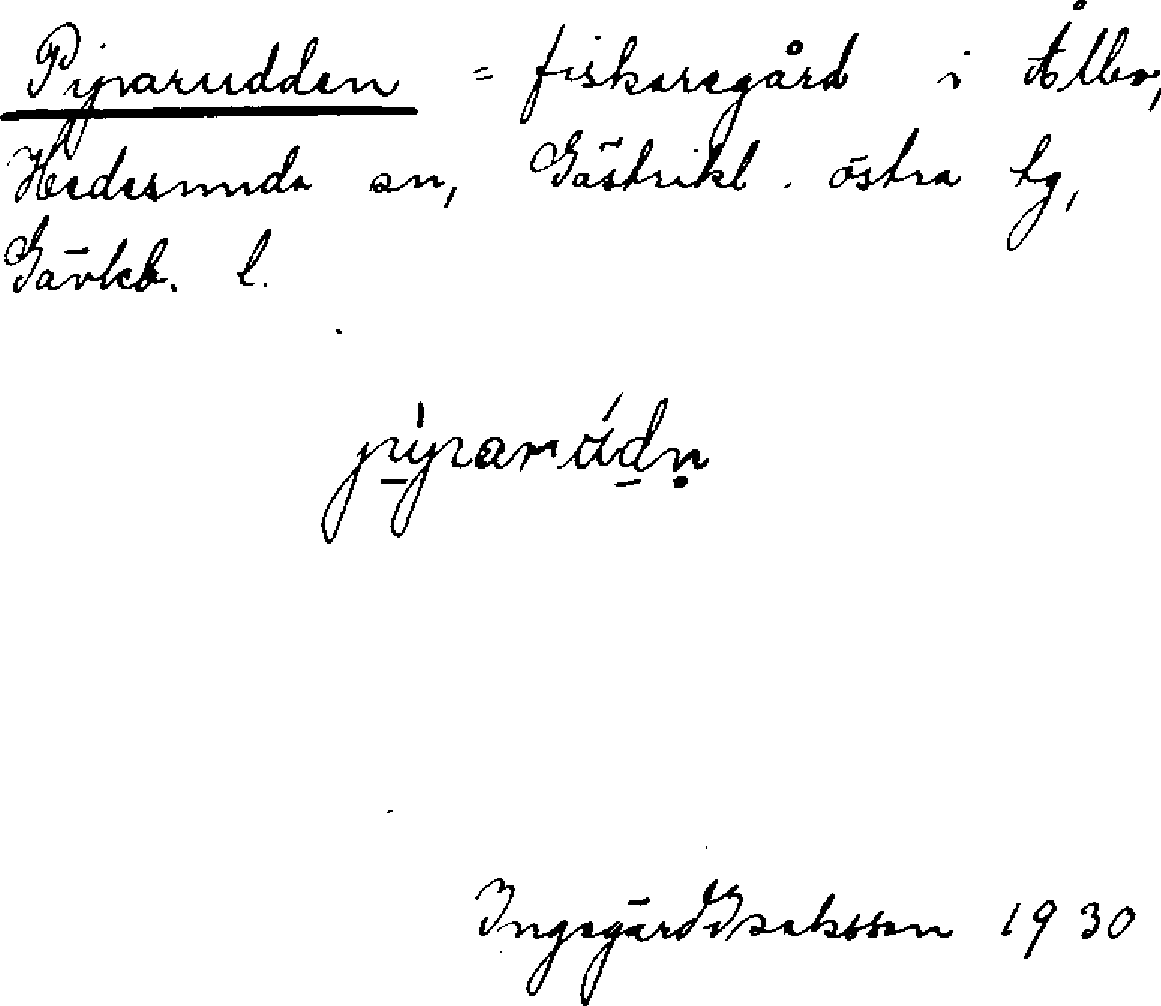 Piparudden = fiskaregård i Ålbo,
Hedesunda sn, Gästrikl. östra tg,
Gävleb. l.
piparúdṇ
Ingegärd Isaksson 1930